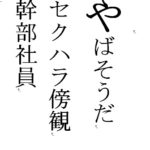 やばそうだ
セクハラ傍観
幹部社員